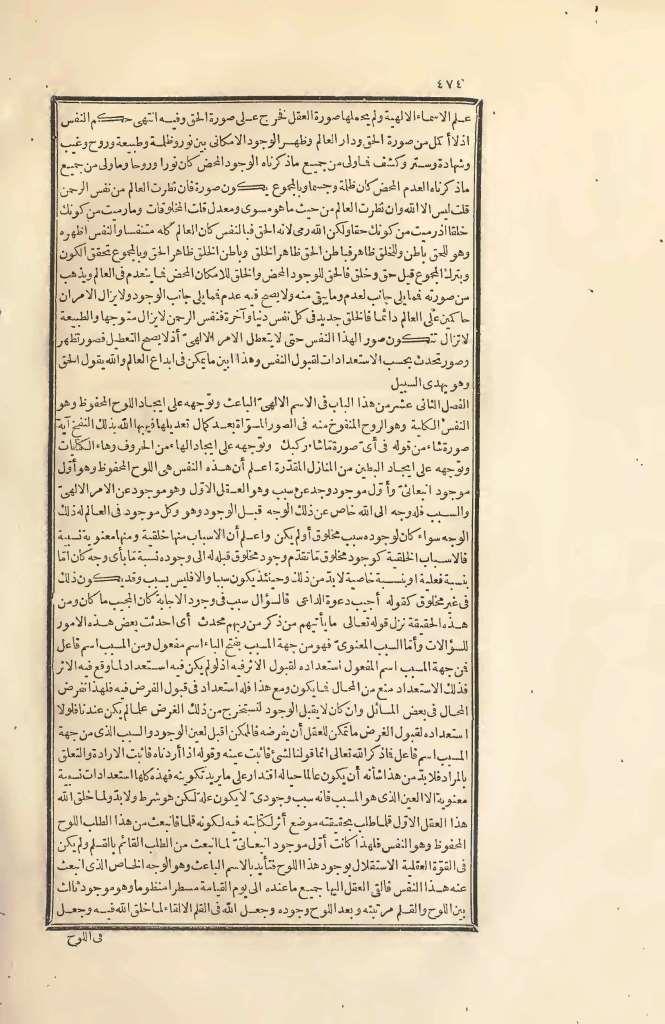 ٤٧٤
علم الاسماء الالهية ولم يحملها صورة العقل فخرج على صورة الحق وفيه انتهى حكم النفس
اذ لا أكمل من صورة الحق ودار العالم وظهر الوجود الامكانى بين نور وظلمة وطبيعة وروح وغيب
وشهادة وستر وكشف فما ولى من جميع ماذكرناه الوجود المحض كان نورا وروحا وما ولى من جميع
ماذكرناه العدم المحض كان ظلمة وجسما وبالمجموع يكون صورة فان نظرت العالم من نفس الرحمن
قلت ليس الا الله وان نظرت العالم من حيث ما هو مسوى ومعدل قلت المخلوقات وما رميت من كونك
خلقا اذ رميت من كونك حقا ولكن الله رمى لانه الحق فبالنفس كان العالم كله متنفسا والنفس اظهره
وهو للحق باطن وللخلق ظاهر فباطن الحق ظاهر الخلق وباطن الخلق ظاهر الحق وبالمجموع تحقق الكون
وبترك المجموع قيل حق وخلق فالحق للوجود المحض والخلق للامكان المحض فما ينعدم فى العالم ويذهب
من صورته فمما يلى جانب العدم وما يبقى منه ولا يصح فيه عدم فمما يلى جانب الوجود ولا يزال الامران
حاكمين على العالم دائما فالخلق جديد فى كل نفس دنيا وآخرة فنفس الرحمن لا يزال متوجها والطبيعة
لا تزال تتكون صور الهذا النفس حتى لا يتعطل الامر الالهىّ اذ لا يصح التعطيل فصور تظهر
وصور تحدث بحسب الاستعدادات لقبول النفس وهذا ابين ما يمكن فى ابداع العالم والله يقول الحق
وهو يهدى السبيل
الفصل الثانى عشر من هذا الباب فى الاسم الالهىّ الباعث وتوجهه على ايجاد اللوح المحفوظ وهو
النفس الكلية وهو الروح المنفوخ منه فى الصور المسوّاة بعد كمال تعديلها فيهبها الله بذلك النفخ أية
صورة شاء من قوله فى أىّ صورة ماشاء ركبك وتوجهه على ايجاد الهاء من الحروف وهاء الكنايات
وتوجهه على ايجاد البطين من المنازل المقدّرة اعلم أن هذه النفس هى اللوح المحفوظ وهو أول
موجود انبعاثىّ وأول موجود وجد عن سبب وهو العقل الاول وهو موجود عن الامر الالهىّ
والسبب فله وجه الى الله خاص عن ذلك الوجه قبل الوجود وهو وكل موجود فى العالم له ذلك
الوجه سواء كان لوجوده سبب مخلوق أو لم يكن واعلم أن الاسباب منها خلقية ومنها معنوية نسبية
فالاسباب الخلقية كوجود مخلوق ما تقدّم وجود مخلوق قبله له الى وجوده نسبة ما بأى وجه كان امّا
بنسبة فعلية أو بنسبة خاصية لا بدّ من ذلك وحينئذ يكون سببا والا فليس بسبب وقد يكون ذلك
فى غير مخلوق كقوله أجيب دعوة الداعى فالسؤال سبب فى وجود الاجابة كان المجيب ما كان ومن
هذه الحقيقة نزل قوله تعالى ما يأتيهم من ذكر من ربهم محدث أى احدثت بعض هذه الامور
للسؤالات وأمّا السبب المعنوىّ فهو من جهة المسبب بفتح الباء اسم مفعول ومن المسبب اسم فاعل
فمن جهة المسبب اسم المفعول استعداده لقبول الاثر فيه اذ لو لم يكن فيه استعداد لما وقع فيه الاثر
فذلك الاستعداد منع من المحال فما يكون ومع هذا فله استعداد فى قبول الفرض فيه فلهذا نفرض
المحال فى بعض المسائل وان كان لا يقبل الوجود لنستخرج من ذلك الفرض علما لم يكن عندنا فلولا
استعداده لقبول الفرض ما تمكن للعقل أن يفرضه فالممكن اقبل لعين الوجود والسبب الذى من جهة
المسبب اسم فاعل فما ذكر الله تعالى انما قولنا لشئ فاثبت عينه وقوله اذا أردناه فاثبت الارادة والتعلق
بالمراد فلا بدّ من هذا شأنه أن يكون عالما حيا له اقتدار على ما يريد تكوينه فهذه كلها استعدادات نسبية
معنوية الا العين الذى هو المسبب فانه سبب وجودىّ لا يكون علة لكن هو شرط ولا بدّ ولما خلق الله
هذا العقل الاول قلما طلب بحقيقته موضع أثر لكتابته فيه لكونه قلما فانبعث من هذا الطلب اللوح
المحفوظ وهو النفس فلهذا كانت أول موجود انبعاثىّ لما انبعث من الطلب القائم بالقلم ولم يكن
فى القوّة العقلية الاستقلال بوجود هذا اللوح فتأيد بالاسم الباعث وهو الوجه الخاص الذى انبعث
عنه هذا النفس فالقى العقل اليها جميع ما عنده الى يوم القيامة مسطرا منظوما وهو موجود ثالث
بين اللوح والقلم مرتبته وبعد اللوح وجوده وجعل الله فى القلم الالقاء لما خلق الله فيه وجعل
فى اللوح